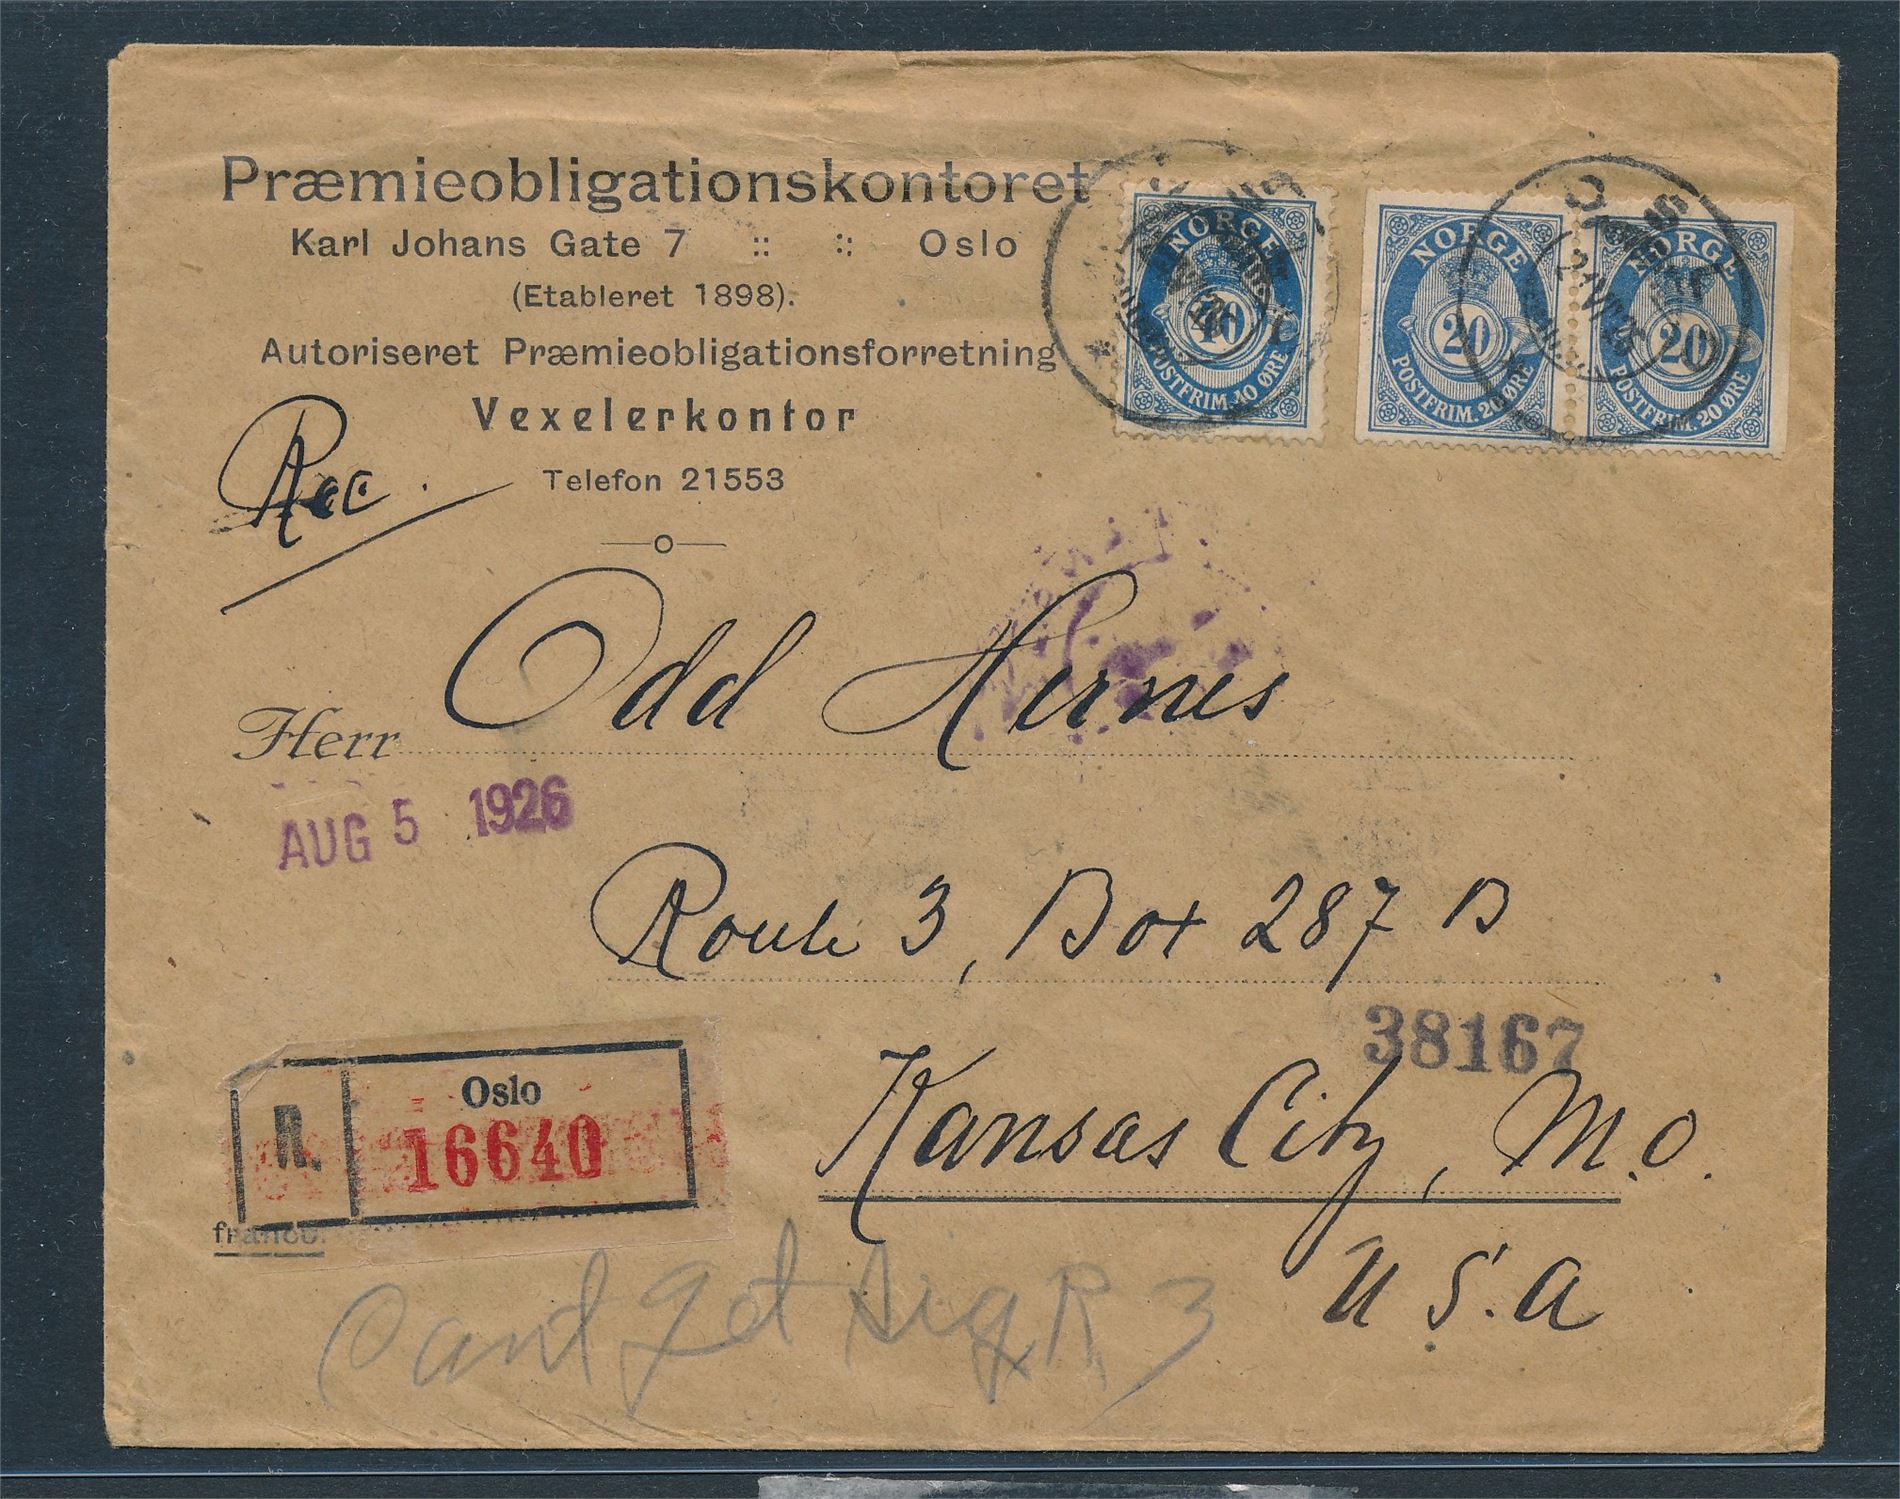 Præmieobligationskontoret
Karl Johans Gate 7 :: :: Oslo
(Etableret 1898).
Autoriseret Præmieobligationsforretning
Vexelerkontor
Telefon 21553
NORGE
40
POSTFRIM. 40 ØRE
NORGE
20
POSTFRIM. 20 ØRE
NORGE
20
POSTFRIM. 20 ØRE
OSLO
Rec.
Herr Odd Hernes
AUG 5 1926
Route 3, Box 287 B
38167
Kansas City, M.O.
U S. A
R.
Oslo
16640
franco.
Cant get sig R 3